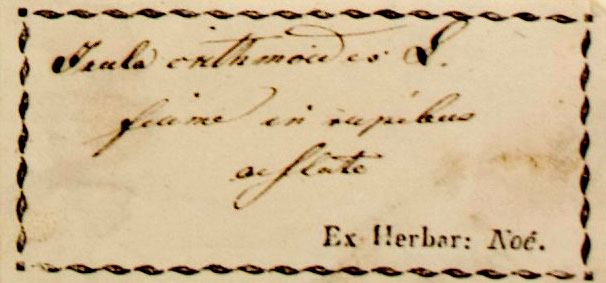 Inula crithmoides L.
fiume in rupibus
aestate
Ex Herbar: Noé.